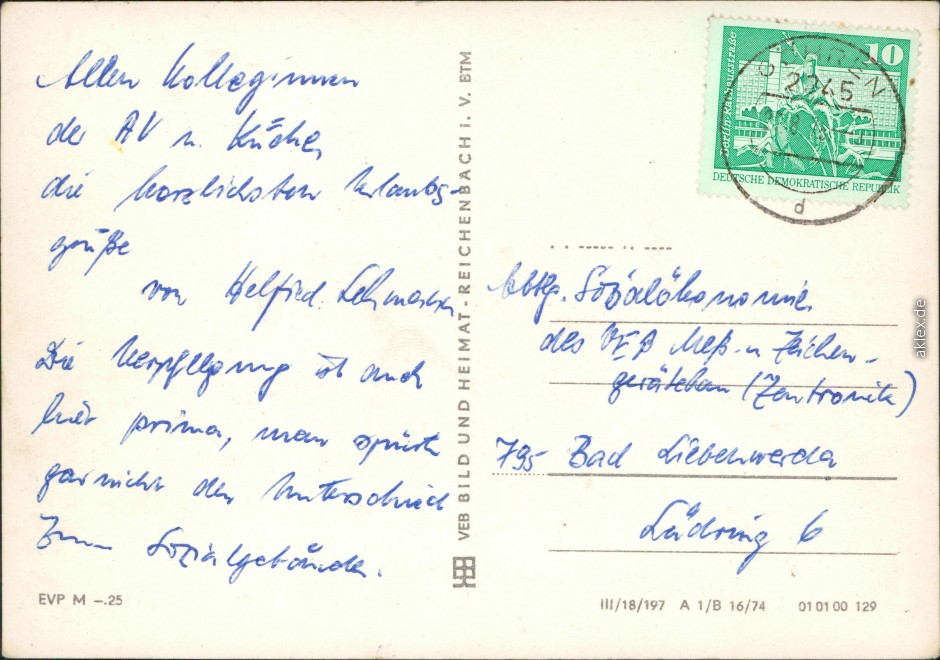 Allen Kolleginnen
der AV u. Küche,
die herzlichsten Urlaubs-
grüße
von Helfried
Die Verpflegung ist auch
hier prima, man spürt
gar nicht den Unterschied
zum Sozialgebäude.
EVP M –.25
VEB BILD UND HEIMAT · REICHENBACH I. V. BTM
Berlin, Rathausstraße
10
DEUTSCHE DEMOKRATISCHE REPUBLIK
d
Abtlg. Sozialökonomie
des VEB Meß- u Zeichen-
gerätebau (Zentronik)
795 Bad Liebenwerda
Südring 6
III/18/197 A 1/B 16/74 01 01 00 129
aklex.de